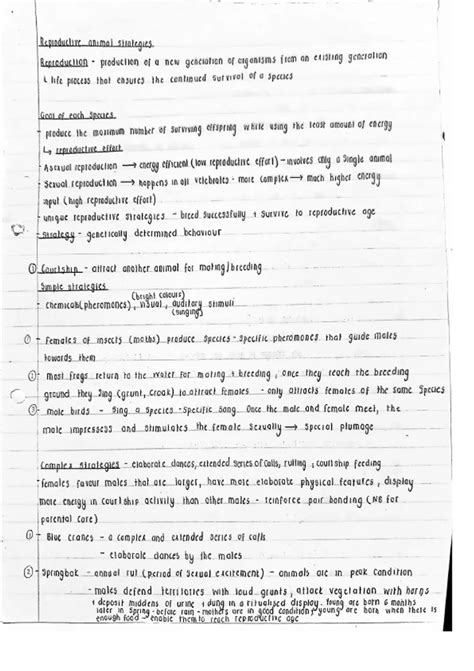 Reproductive animal strategies
Reproduction - production of a new generation of organisms from an existing generation
↳ life process that ensures the continued survival of a species
Goal of each species
- produce the maximum number of surviving offspring while using the least amount of energy
↳ reproductive effort
- Asexual reproduction → energy efficient (low reproductive effort) - involves only a single animal
- Sexual reproduction → happens in all vetebrates - more complex → much higher energy
input (high reproductive effort)
- unique reproductive strategies - breed successfully + survive to reproductive age
- Strategy - genetically determined behaviour
① Courtship - attract another animal for mating/breeding
Simple strategies
(bright colours)
- chemicals (pheromones), visual, auditory stimuli
(singing)
① - females of insects (moths) produce species-specific pheromones that guide males
towards them
② - most frogs return to the water for mating + breeding, once they reach the breeding
ground they sing (grunt, croak) to attract females - only attracts females of the same species
③ - male birds - sing a species-specific song. Once the male and female meet, the
male impressess and stimulates the female sexually → special plumage
Complex strategies - elaborate dances, extended series of calls, rutting, courtship feeding
- females favour males that are larger, have more elaborate physical features, display
more energy in courtship activity than other males - reinforce pair bonding (NB for
parental care)
① - Blue cranes - a complex and extended series of calls
- elaborate dances by the males
② - Springbok - annual rut (period of sexual excitement) - animals are in peak condition
- males defend territories with loud grunts, attack vegetation with horns
+ deposit middens of urine + dung in a ritualised display. Young are born 6 months
later in Spring - before rain - mothers are in good condition, young are born when there is
enough food → enable them to reach reproductive age